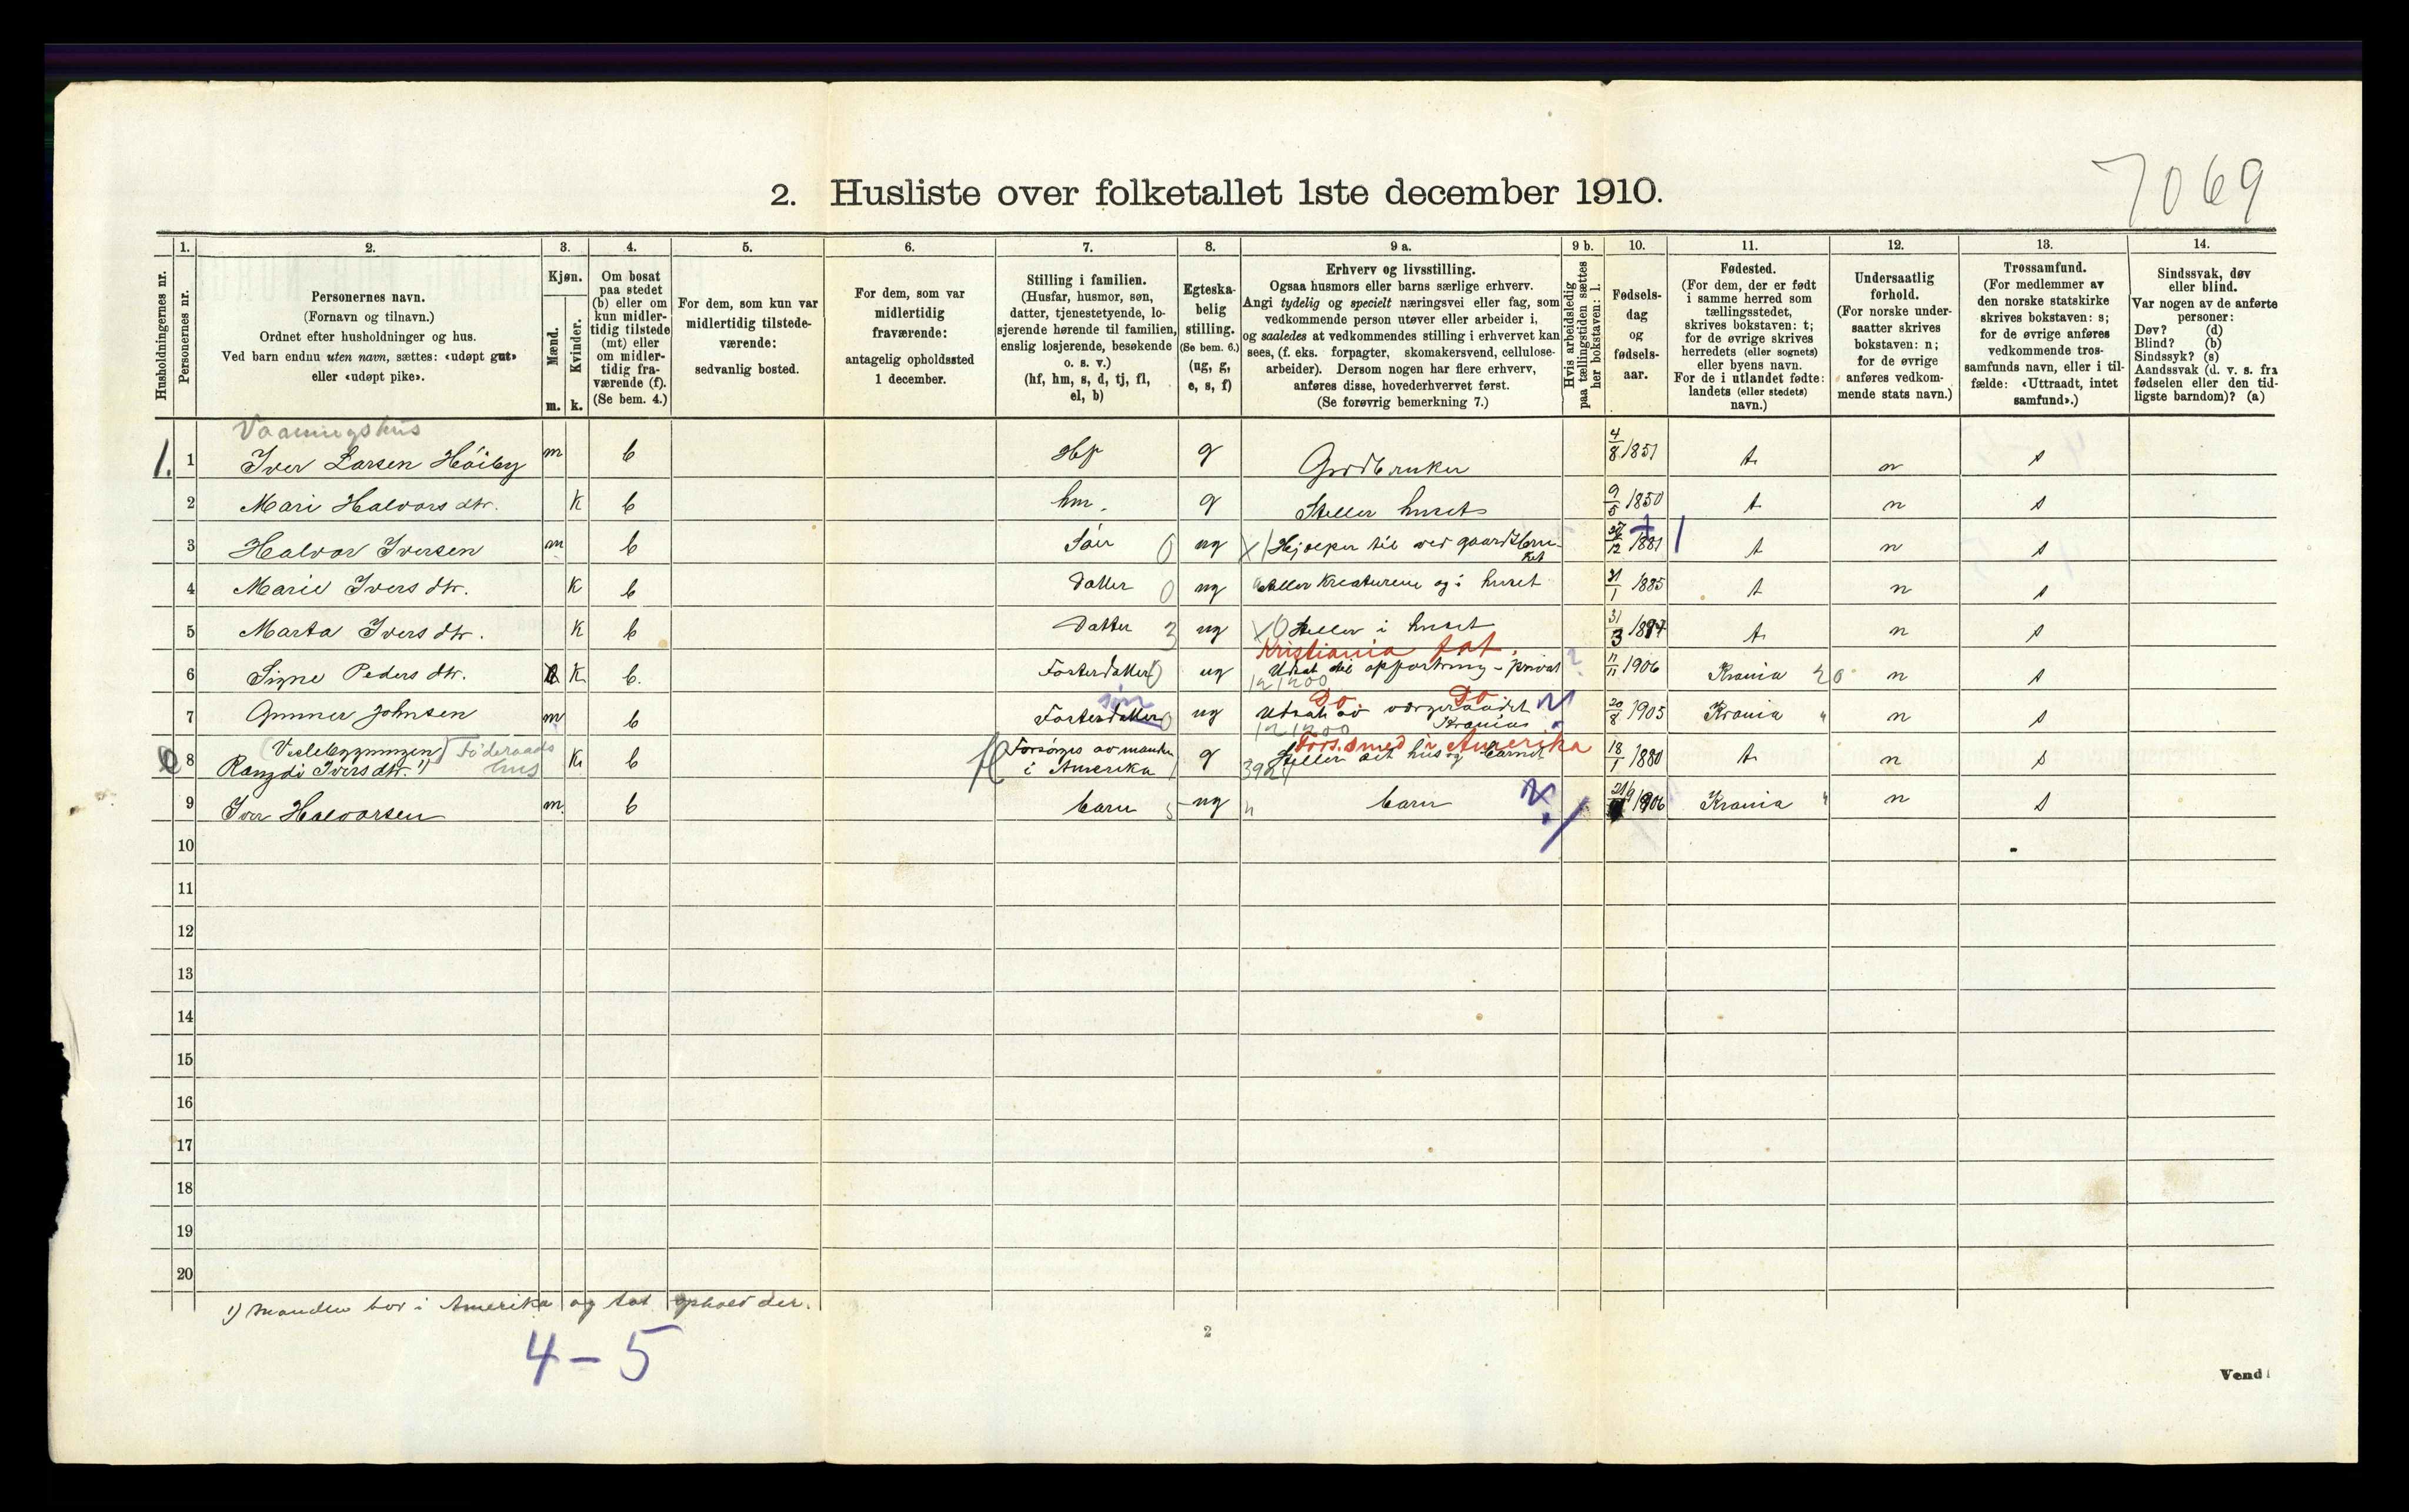 7069
2. Husliste over folketallet 1ste december 1910.
Husholdningernes nr.
1.
Personernes nr.
2.
Personernes navn.
(Fornavn og tilnavn.)
Ordnet efter husholdninger og hus.
Ved barn endnu uten navn, sættes: «udøpt gut»
eller «udøpt pike».
3.
Kjøn.
Mænd.
Kvinder.
m. k.
4.
Om bosat
paa stedet
(b) eller om
kun midler-
tidig tilstede
(mt) eller
om midler-
tidig fra-
værende (f).
(Se bem. 4.)
5.
For dem, som kun var
midlertidig tilstede-
værende:
sedvanlig bosted.
6.
For dem, som var
midlertidig
fraværende:
antagelig opholdssted
1 december.
7.
Stilling i familien.
(Husfar, husmor, søn,
datter, tjenestetyende, lo-
sjerende hørende til familien,
enslig losjerende, besøkende
o. s. v.)
(hf, hm, s, d, tj, fl,
el, b)
8.
Egteska-
belig
stilling.
(Se bem. 6.)
(ug, g,
e, s, f)
9 a.
Erhverv og livsstilling.
Ogsaa husmors eller barns særlige erhverv.
Angi tydelig og specielt næringsvei eller fag, som
vedkommende person utøver eller arbeider i,
og saaledes at vedkommendes stilling i erhvervet kan
sees, (f. eks. forpagter, skomakersvend, cellulose-
arbeider). Dersom nogen har flere erhverv,
anføres disse, hovederhvervet først.
(Se forøvrig bemerkning 7.)
9 b.
Hvis arbeidsledig
paa tællingstiden sættes
her bokstaven: l.
10.
Fødsels-
dag
og
fødsels-
aar.
11.
Fødested.
(For dem, der er født
i samme herred som
tællingsstedet,
skrives bokstaven: t;
for de øvrige skrives
herredets (eller sognets)
eller byens navn.
For de i utlandet fødte:
landets (eller stedets)
navn.)
12.
Undersaatlig
forhold.
(For norske under-
saatter skrives
bokstaven: n;
for de øvrige
anføres vedkom-
mende stats navn.)
13.
Trossamfund.
(For medlemmer av
den norske statskirke
skrives bokstaven: s;
for de øvrige anføres
vedkommende tros-
samfunds navn, eller i til-
fælde: «Uttraadt, intet
samfund».)
14.
Sindssvak, døv
eller blind.
Var nogen av de anførte
personer:
Døv? (d)
Blind? (b)
Sindssyk? (s)
Aandssvak (d. v. s. fra
fødselen eller den tid-
ligste barndom)? (a)
Vaaningshus
1. 1 Iver Larsen Høiby m b Hf g Gardbruker 4/8 1851 t. n s
2 Mari Halvorsdtr. k b hm. g Steller huset 9/5 1850 t. n s
3 Halvor Iversen m b Søn 0 ug X Hjælper til ved gaardsbru-
ket 1881 t n s
4 Marie Iversdtr. k b Datter 0 ug Steller kreaturene og i huset 31/1 1885 t n s
5 Marta Iversdtr. k b Datter 3 ug X0 Steller i huset 31/3 t. n s
Kristiania fat.
6 Signe Pedersdtr. K b. Fosterdatter 0 ug Utsat til opfostring – privat ? 11/11 1906 Krania 20 n s
121200
søn
Do Do
7 Gunner Johnsen m b Fosterdatter 0 ug Utsat av værgeraadet Kranias 20/8 1905 Krania " n s
121200
(Veslebygningen) Føderaads
hus
8 Rangdi Iversdtr. 1) k b Forsørges av manden
i Amerika g Steller set hus og barnet 18/1 1880 t. n s
Fors. smed i Amerika
9 Iver Halvorsen m. b barn 5 ug " barn 1906 Krania " n s
10
11
12
13
14
15
16
17
18
19
20
1) Manden bor i Amerika og fat ophold der.
4 – 5
2
Vend!